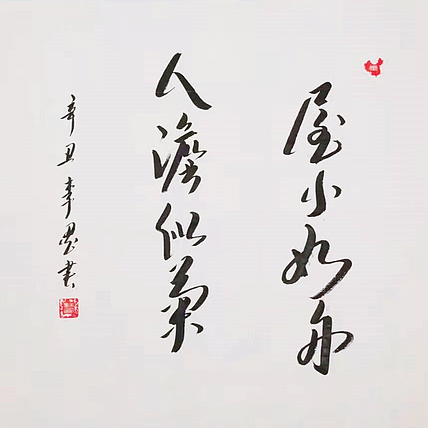 屋小如舟
人澹似菊
辛丑李墨书